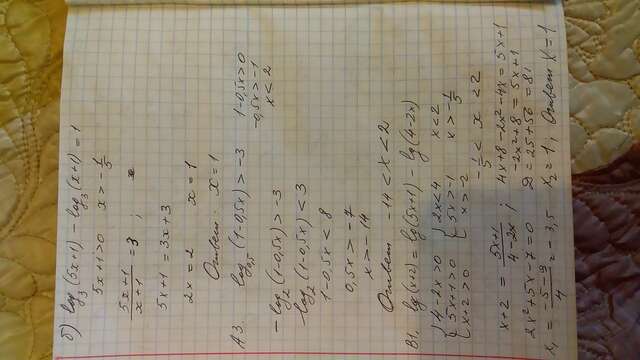 б) log₃(5x+1) - log₃(x+1) = 1
5x+1>0 x>-1/5
(5x+1)/(x+1) = 3 ;
5x+1 = 3x+3
2x = 2 x = 1
Ответ: x = 1
А3. log₀,₅(1-0,5x) > -3 1-0,5x>0
-0,5x>-1
x<2
-log₂(1-0,5x) > -3
log₂(1-0,5x) < 3
1-0,5x < 8
0,5x > -7
x > -14
Ответ -14 < x < 2
В1. lg(x+2) = lg(5x+1) - lg(4-2x)
{4-2x>0 {2x<4 x<2
{5x+1>0 {5x>-1 x>-1/5
{x+2>0 {x>-2
-1/5 < x < 2
x+2 = (5x+1)/(4-2x) ; 4x+8-2x²-4x = 5x+1
-2x²+8 = 5x+1
2x²+5x-7=0 D = 25+56 = 81
x₁ = (-5-9)/4 = -3,5 x₂ = 1 ; Ответ x = 1